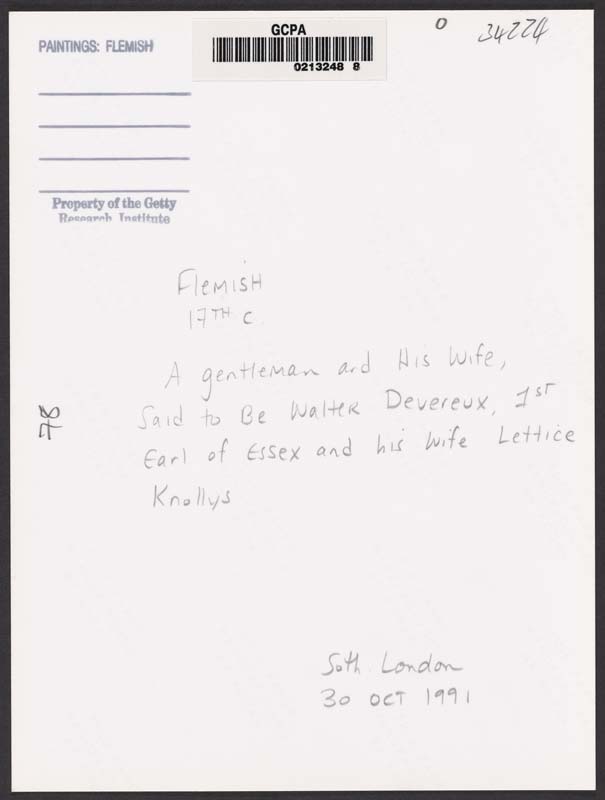 PAINTINGS: FLEMISH
GCPA
0213248 8
0
34224
Property of the Getty
Research Institute
Flemish
17TH C
A gentleman and His Wife,
Said to Be Walter Devereux, 1st
Earl of Essex and his Wife Lettice
Knollys
78
Soth. London
30 OCT 1991